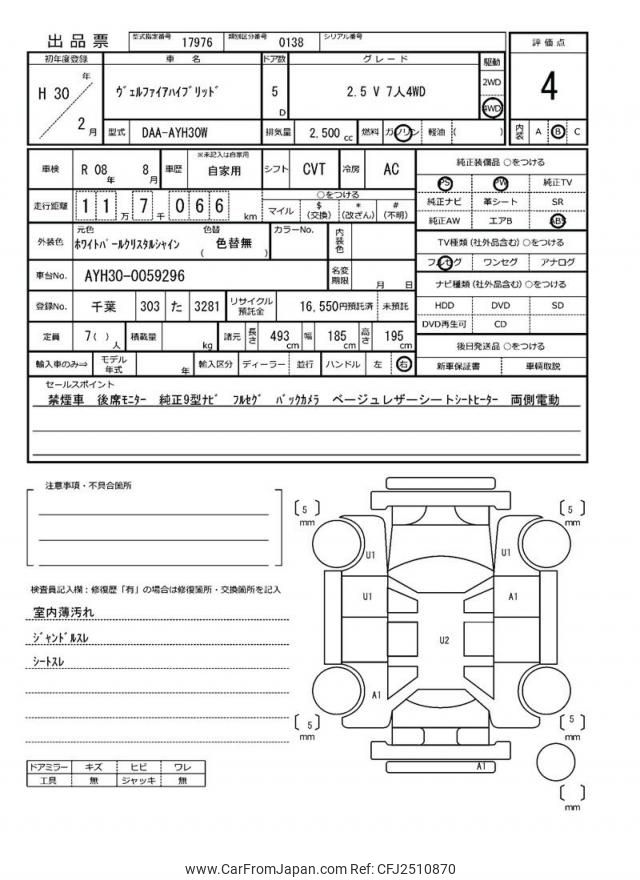 出品票
型式指定番号 17976 類別区分番号 0138 シリアル番号
初年度登録 車 名 ドア数 グレード 駆動 評価点
H 30 年 2 月
ヴェルファイアハイブリッド 5 D 2.5 V 7人4WD 2WD 4WD 4
型式 DAA-AYH30W 排気量 2,500 cc 燃料 ガソリン 軽油 ( ) 内装 A B C
車検 R 08 年 8 月 車歴 ※未記入は自家用 自家用 シフト CVT 冷房 AC
走行距離 1 1 万 7 千 0 6 6 km
○をつける
マイル $ (交換) * (改ざん) # (不明)
外装色 元色 ホワイトパールクリスタルシャイン 色替 ( 色替無 ) カラーNo. 内装色
車台No. AYH30-0059296 名変期限 月 日
登録No. 千葉 303 た 3281 リサイクル預託金 16,550円預託済 未預託
定員 7( ) 人 積載量 kg 諸元 長さ 493 cm 幅 185 cm 高さ 195 cm
輸入車のみ⇒ モデル年式 年 輸入区分 ディーラー 並行 ハンドル 左 右
純正装備品 ○をつける
PS PW 純正TV
純正ナビ 革シート SR
純正AW エアB ABS
TV種類(社外品含む)○をつける
フルセグ ワンセグ アナログ
ナビ種類(社外品含む)○をつける
HDD DVD SD
DVD再生可 CD
後日発送品 ○をつける
新車保証書 車輌取説
セールスポイント
禁煙車 後席モニター 純正9型ナビ フルセグ バックカメラ ベージュレザーシートシートヒーター 両側電動
注意事項・不具合箇所
検査員記入欄:修復歴「有」の場合は修復箇所・交換箇所を記入
室内薄汚れ
ジャンドルスレ
シートスレ
ドアミラー キズ ヒビ ワレ
工具 無 ジャッキ 無
[ 5 ] mm
[ 5 ] mm
U1 U1
U1 A1
U2
A1
[ 5 ] mm
[ 5 ] mm
A1
[ ] mm
www.CarFromJapan.com Ref: CFJ2510870